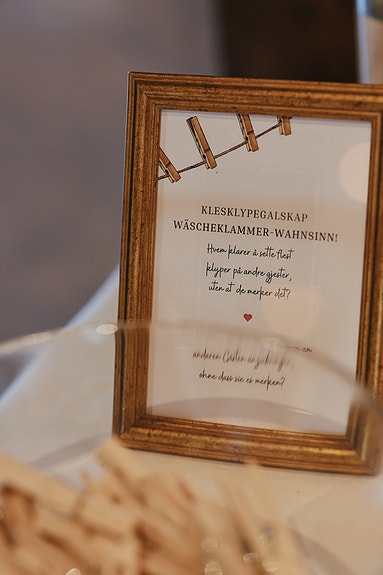 KLESKLYPEGALSKAP
WÄSCHEKLAMMER-WAHNSINN!
Hvem klarer å sette flest
klyper på andre gjester,
uten at de merker det?
anderen Gästen
ohne dass sie es merken?